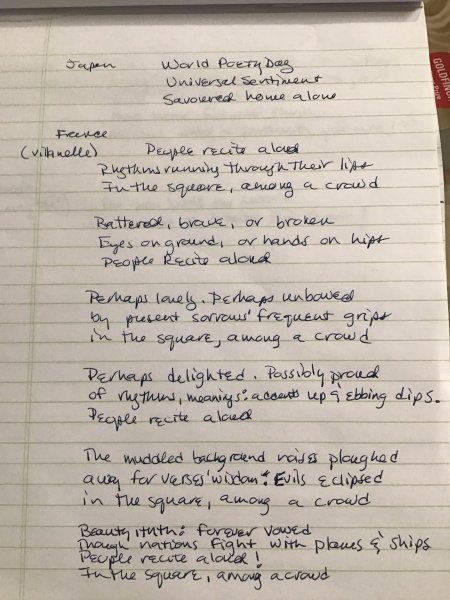 Japan World Poetry Day
Universal Sentiment
Savoured home alone
France
(villanelle) People recite aloud
Rhythms running through their lips
In the square, among a crowd
Battered, brave, or broken
Eyes on ground, or hands on hips
People Recite aloud
Perhaps lonely. Perhaps unbowed
by present sorrows' frequent grips
in the square, among a crowd
Perhaps delighted. Possibly proud
of rhythms, meanings: accents up & ebbing dips.
People recite aloud
The muddled background noises ploughed
away for verses' wisdom: Evils eclipsed
in the square, among a crowd
Beauty, truth: forever vowed
Though nations fight with planes & ships
People recite aloud!
In the square, among a crowd
GOLDFINCH